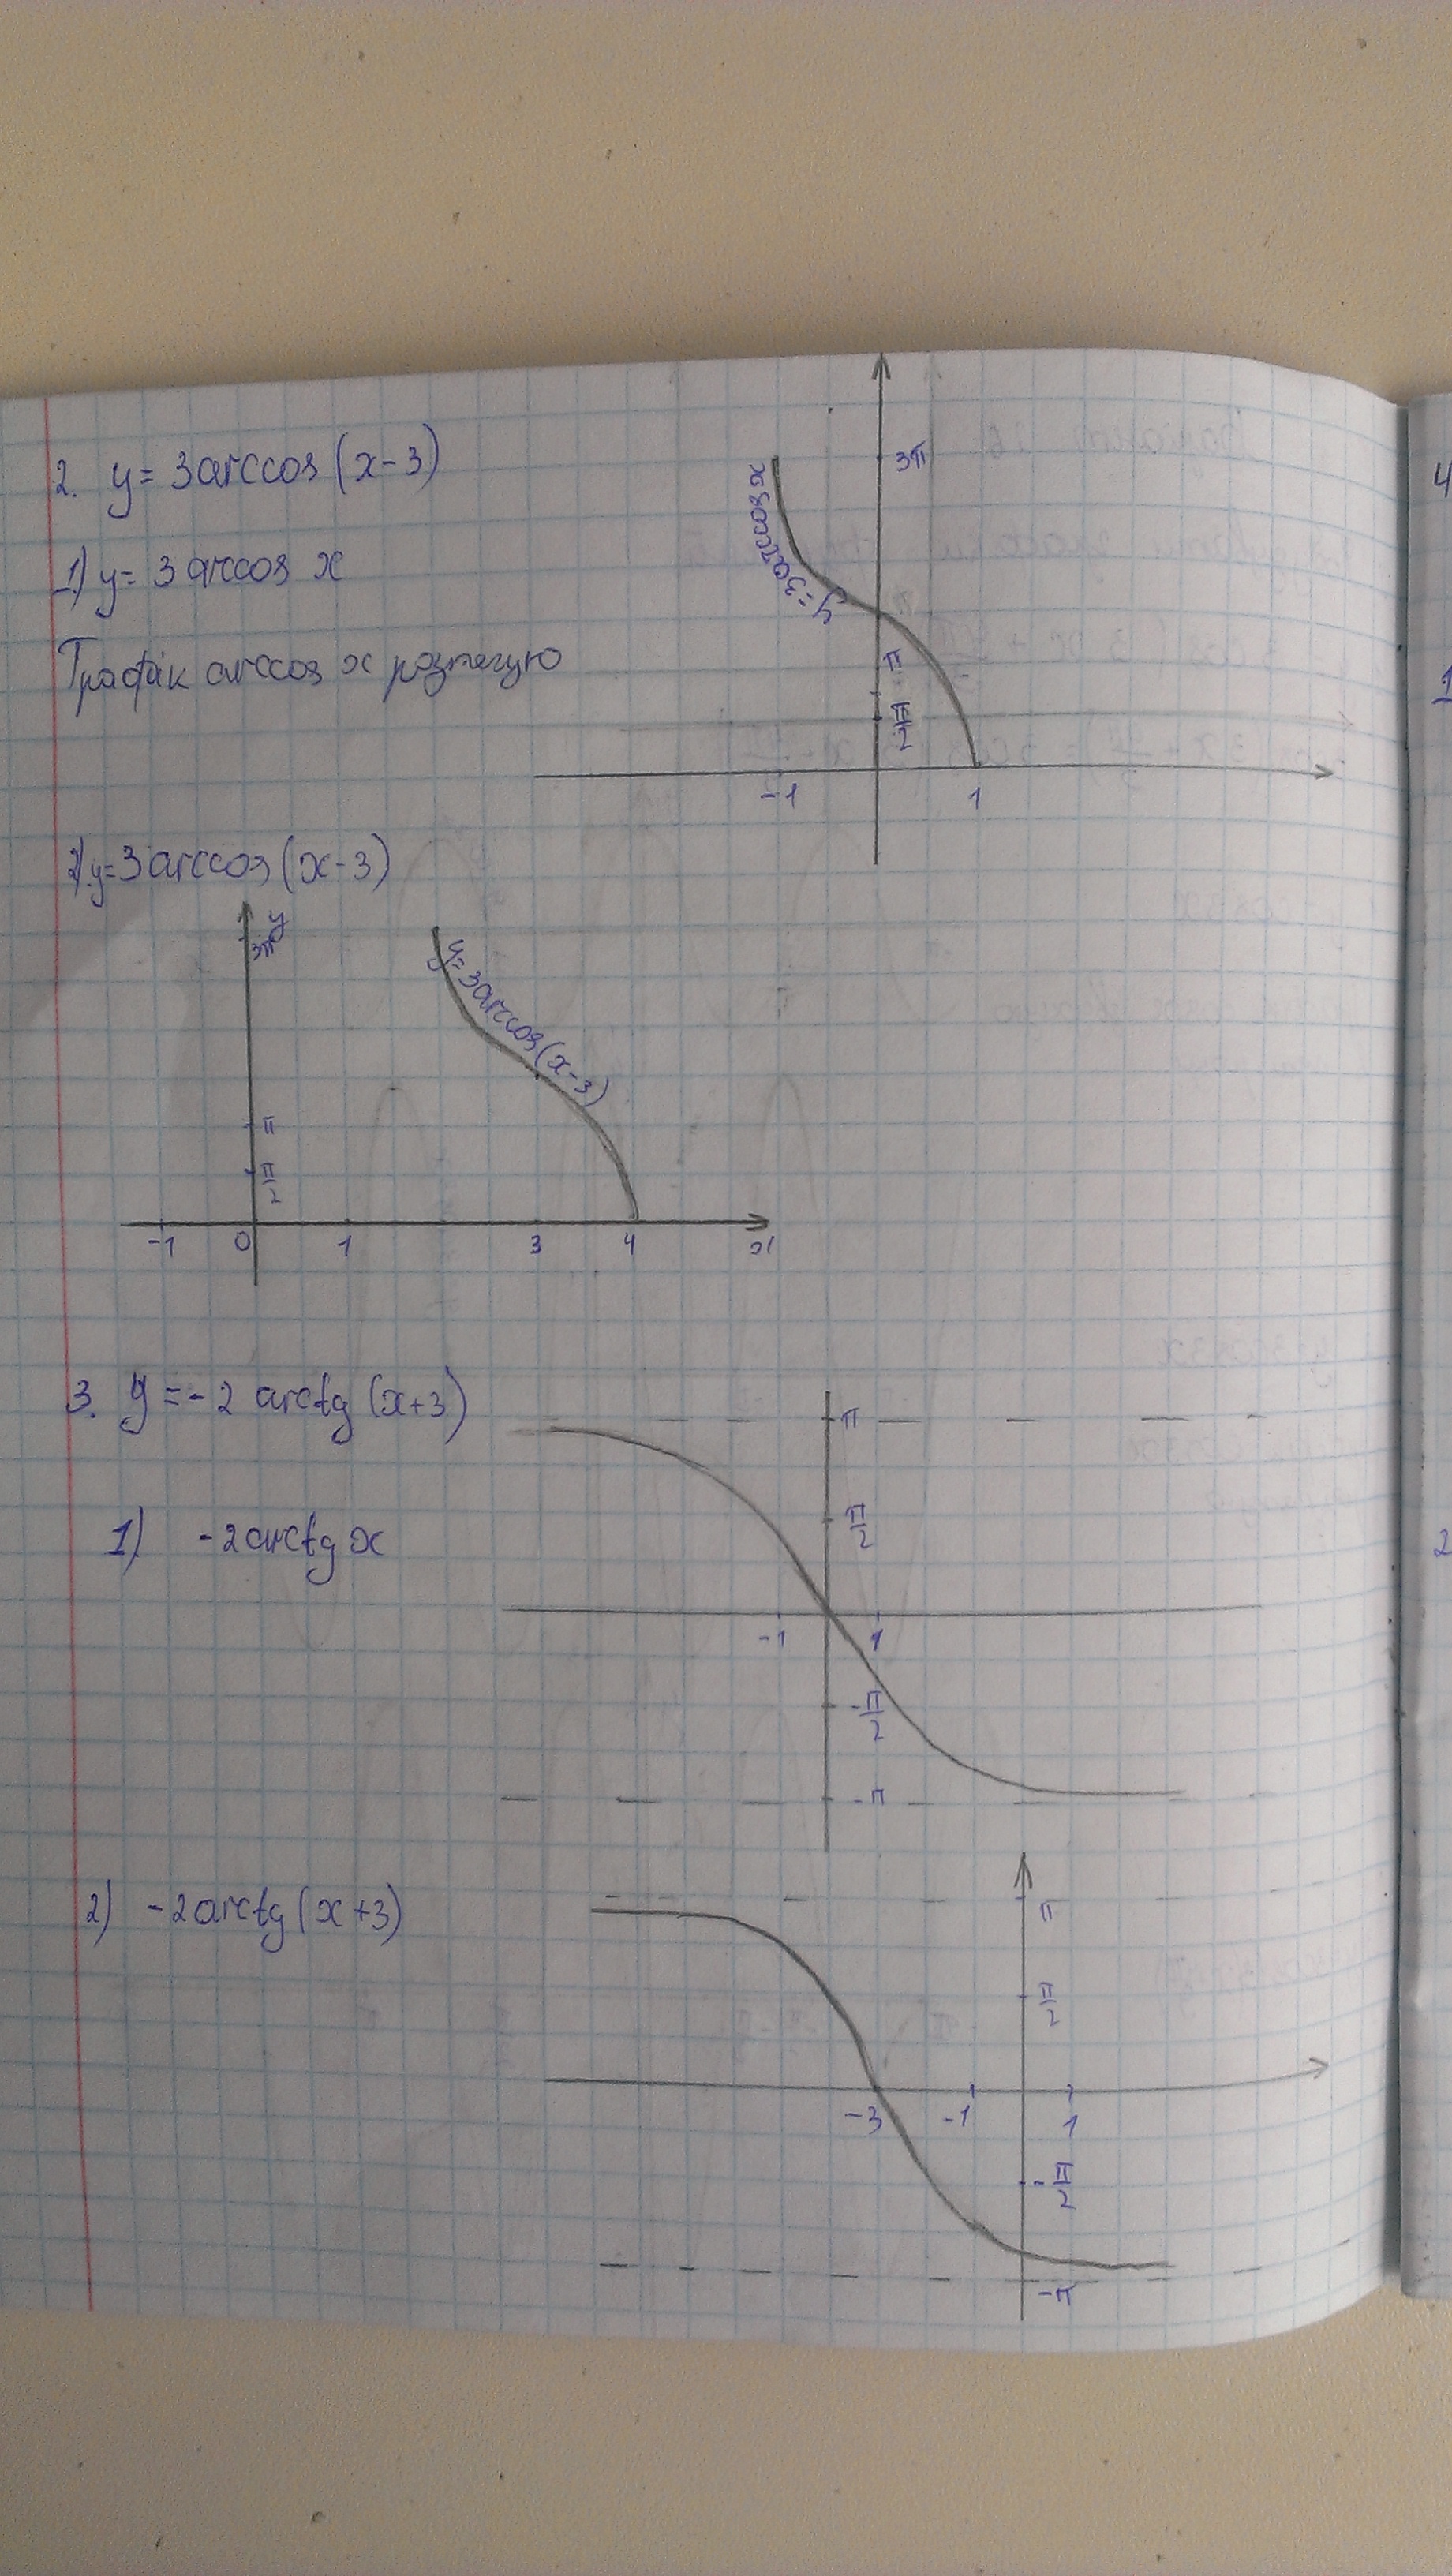 2. y = 3 arccos (x-3)
1) y = 3 arccos x
Графік arccos x розтягую
y = 3 arccos x
3π
π
π/2
-1
1
2) y = 3 arccos (x-3)
y
3π
y = 3 arccos (x-3)
π
π/2
-1
0
1
3
4
x
3. y = -2 arctg (x+3)
1) -2 arctg x
π
π/2
-1
1
-π/2
-π
2) -2 arctg (x+3)
π
π/2
-3
-1
1
-π/2
-π
4
1
2